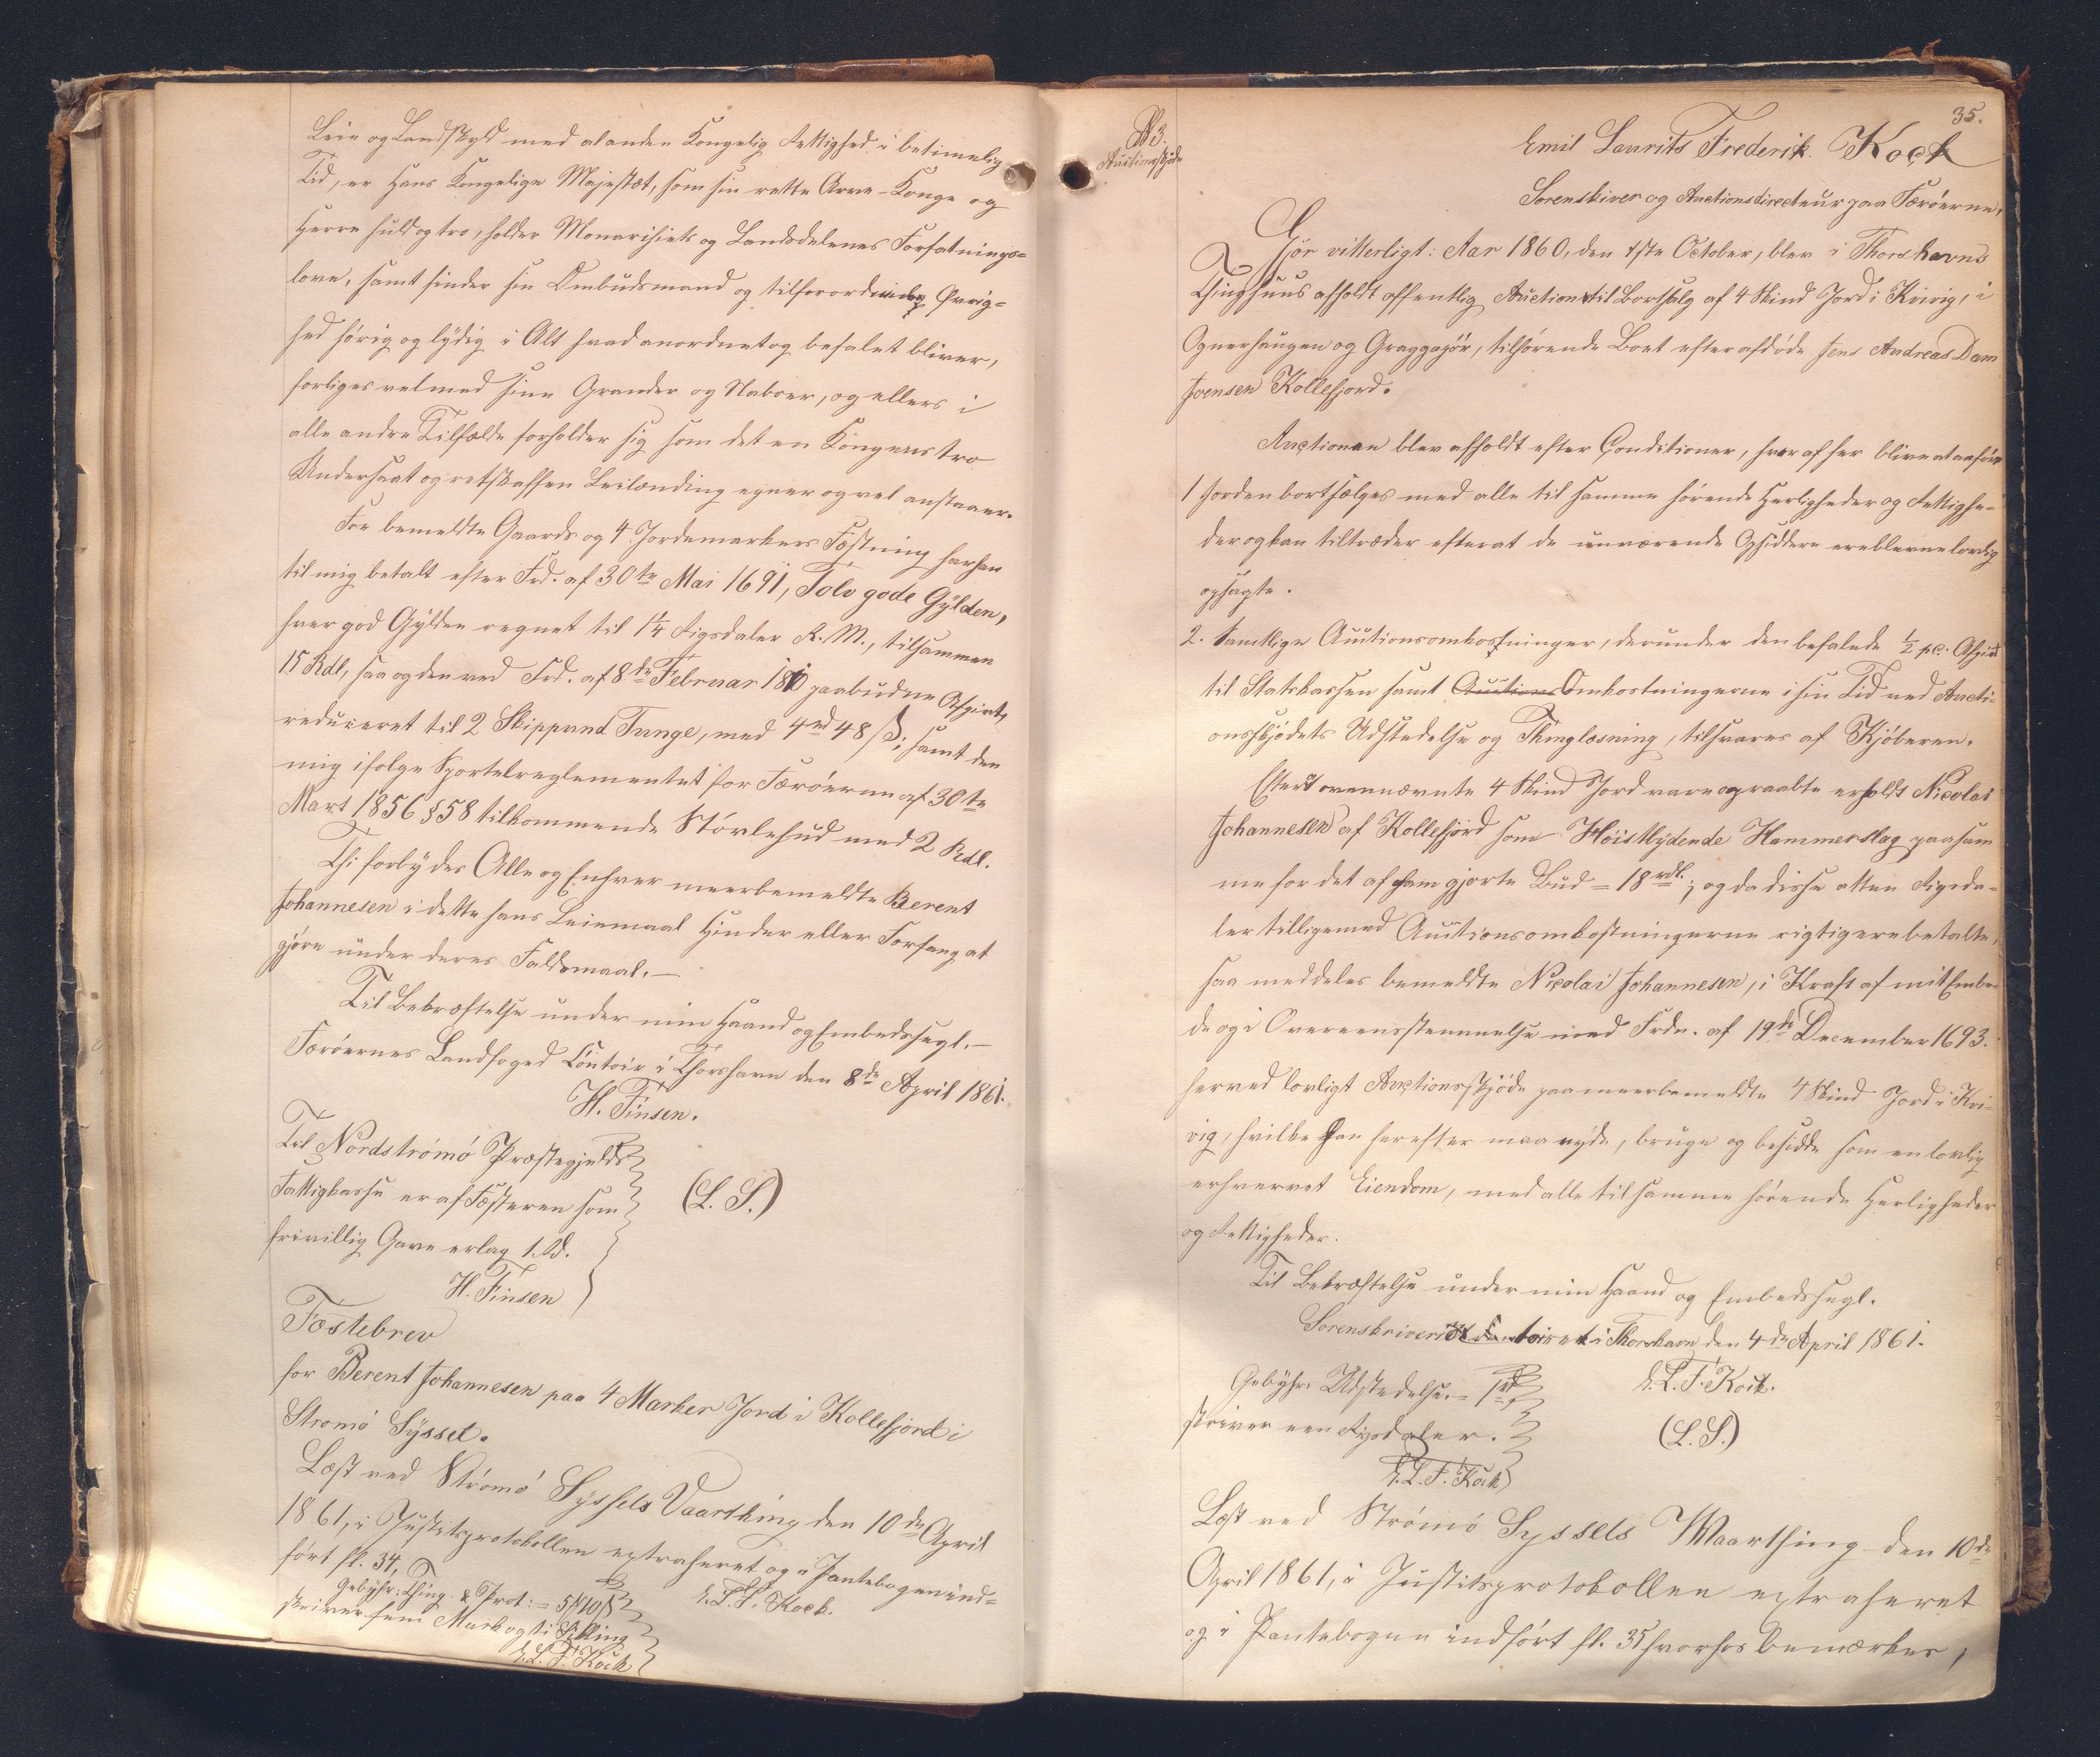 Leie og Landskyld med al anden Kongelig Rettighed i betimelig
Tid, er Hans Kongelige Majestæt, som sin rette Arve-Konge og
Herre huld og tro, holder Monarkiets og Landsdelenes Forfatnings=
love, samt finder sin Ombudsmand og tilforordnede Øvrig=
hed hørig og lydig i Alt hvad anordnet og befalet bliver,
forliges vel med sine Grander og Naboer, og ellers i
alle andre Tilfælde forholder sig som det en Kongens tro
Undersaat og retskaffen Leilænding egner og vel anstaaer.
For bemeldte Gaards og 4 Jordemarkers Fæstning har han
til mig betalt efter Frd. af 30te Mai 1691, Tolv gode Gylden,
hver god Gylden regnet til 1¼ Rigsdaler R. M., tilsammen
15 Rdl, saa og den ved Frd. af 8de Februar 1810 paabudne Afgivt,
reduceret til 2 Skippund Tunge, med 4rd 48 ß; samt den
mig ifølge Sportelreglementet for Færøerne af 30te
Mart 1856 § 58 tilkommende Støvlehud med 2 Rdl.
Thi forbydes Alle og Enhver meerbemeldte Berent
Johannesen i dette hans Leiemaal Hinder eller Forfang at
gjøre under deres Faldsmaal.—
Til Bekræftelse under min Haand og Embedssegl.—
Færøernes Landfoged Contoir i Thorshavn den 8de April 1861.
H. Finsen.
Til Nordstrømø Præstegjelds
Fattigkasse er af Fæsteren som
(L. S.)
frivillig Gave erlag 1. Rd.
H. Finsen
Fæstebrev
for Berent Johannesen paa 4 Marker Jord i Kollefjord i
Strømø Syssel.
Læst ved Strømø Syssels Vaarthing den 10de April
1861, i Justitsprotokollen extraheret og i Pantebogen ind=
ført fl. 34,
E. L. F. Kock.
Gebyhr: Thing. & Prot: = 5 ℳ 10 ß
skriver fem Mark og ti Skilling
E. L. F. Kock
35.
№ 3.
Auctionsskjøde
Emil Laurits Frederik Kock
Sorenskiver og Auctionsdirecteur paa Færøerne,
Gjør vitterligt: Aar 1860, den 1ste October, blev i Thorshavns
Thinghuus afholdt offentlig Auction til Bortsalg af 4 Skind Jord i Kvivig, i
Ognerhaugen og Graggagjór, tilhørende Boet efter afdøde Jens Andreas Dam
Joensen Kollefjord.
Auctionen blev afholdt efter Conditioner, hvoraf her blive at anføre
1 Jorden bortsælges med alle til samme hørende Herligheder og Rettighe=
der og kan tiltræder efterat de nuværende Opsiddere ere blevne lovlig
opsagte.
2. Samtlige Auctionsomkostninger, derunder den befalede ½ pc. Afgivt
til Statskassen samt Auctions Omkostningerne i sin Tid ved Aucti=
onsskjødets Udstedelse og Thinglæsning, tilsvares af Kjøberen.
Efterat ovennævnte 4 Skind Jord vare opraabte erholdt Nicolai
Johannesen af Kollefjord som Høistbydende Hammerslag paa sam
me for det af ham gjorte Bud = 18 rdl.; og da disse atten Rigsda=
ler tilligemed Auctionsomkostningerne rigtig ere betalte,
saa meddeles bemeldte Nicolai Johannesen, i Kraft af mit Embe=
de og i Overeensstemmelse med Frdn. af 19de December 1693.
herved lovligt Auctionsskjøde paa meerbemeldte 4 Skind Jord i Kvi=
vig, hvilke han herefter maa nyde, bruge og besidde som en lovlig
erhvervet Eiendom, med alle til samme hørende Herligheder
og Rettigheder.
Til Bekræftelse under min Haand og Embedssegl.
Sorenskriveriet Contoiret i Thorshavn den 4de April 1861.
E. L. F. Kock.
Gebyhr: Udstedelse. = 1 rd.
skriver een Rigsdaler.
(L. S.)
E. L. F. Kock
Læst ved Strømø Syssels Waarthing den 10de
April 1861, i Justitsprotokollen extraheret
og i Pantebogen indført fl. 35 hvorhos bemærkes,